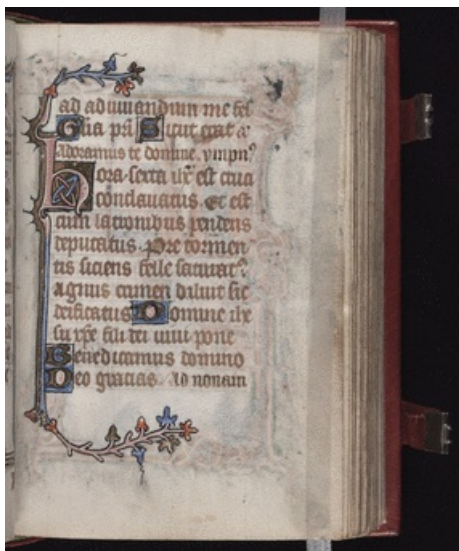 ad adiuuandum me fes
Gloria pri Sicut erat &
Adoramus te domine. ympn9
Hora sexta ihc est cruci
conclauatus. Et est
cum latronibus pendens
deputatus. Pre tormen
tis siciens felle saturat9
Agnus crimen diluit sic
deificatus Domine ihe
xpe fili dei uiui pone
Benedicamus domino
Deo gracias. Ad nonam